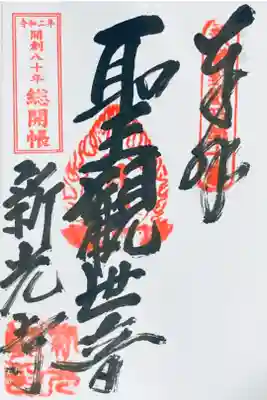 奉拝
聖観世音
新光寺
令和二年
開創八十年
総開帳